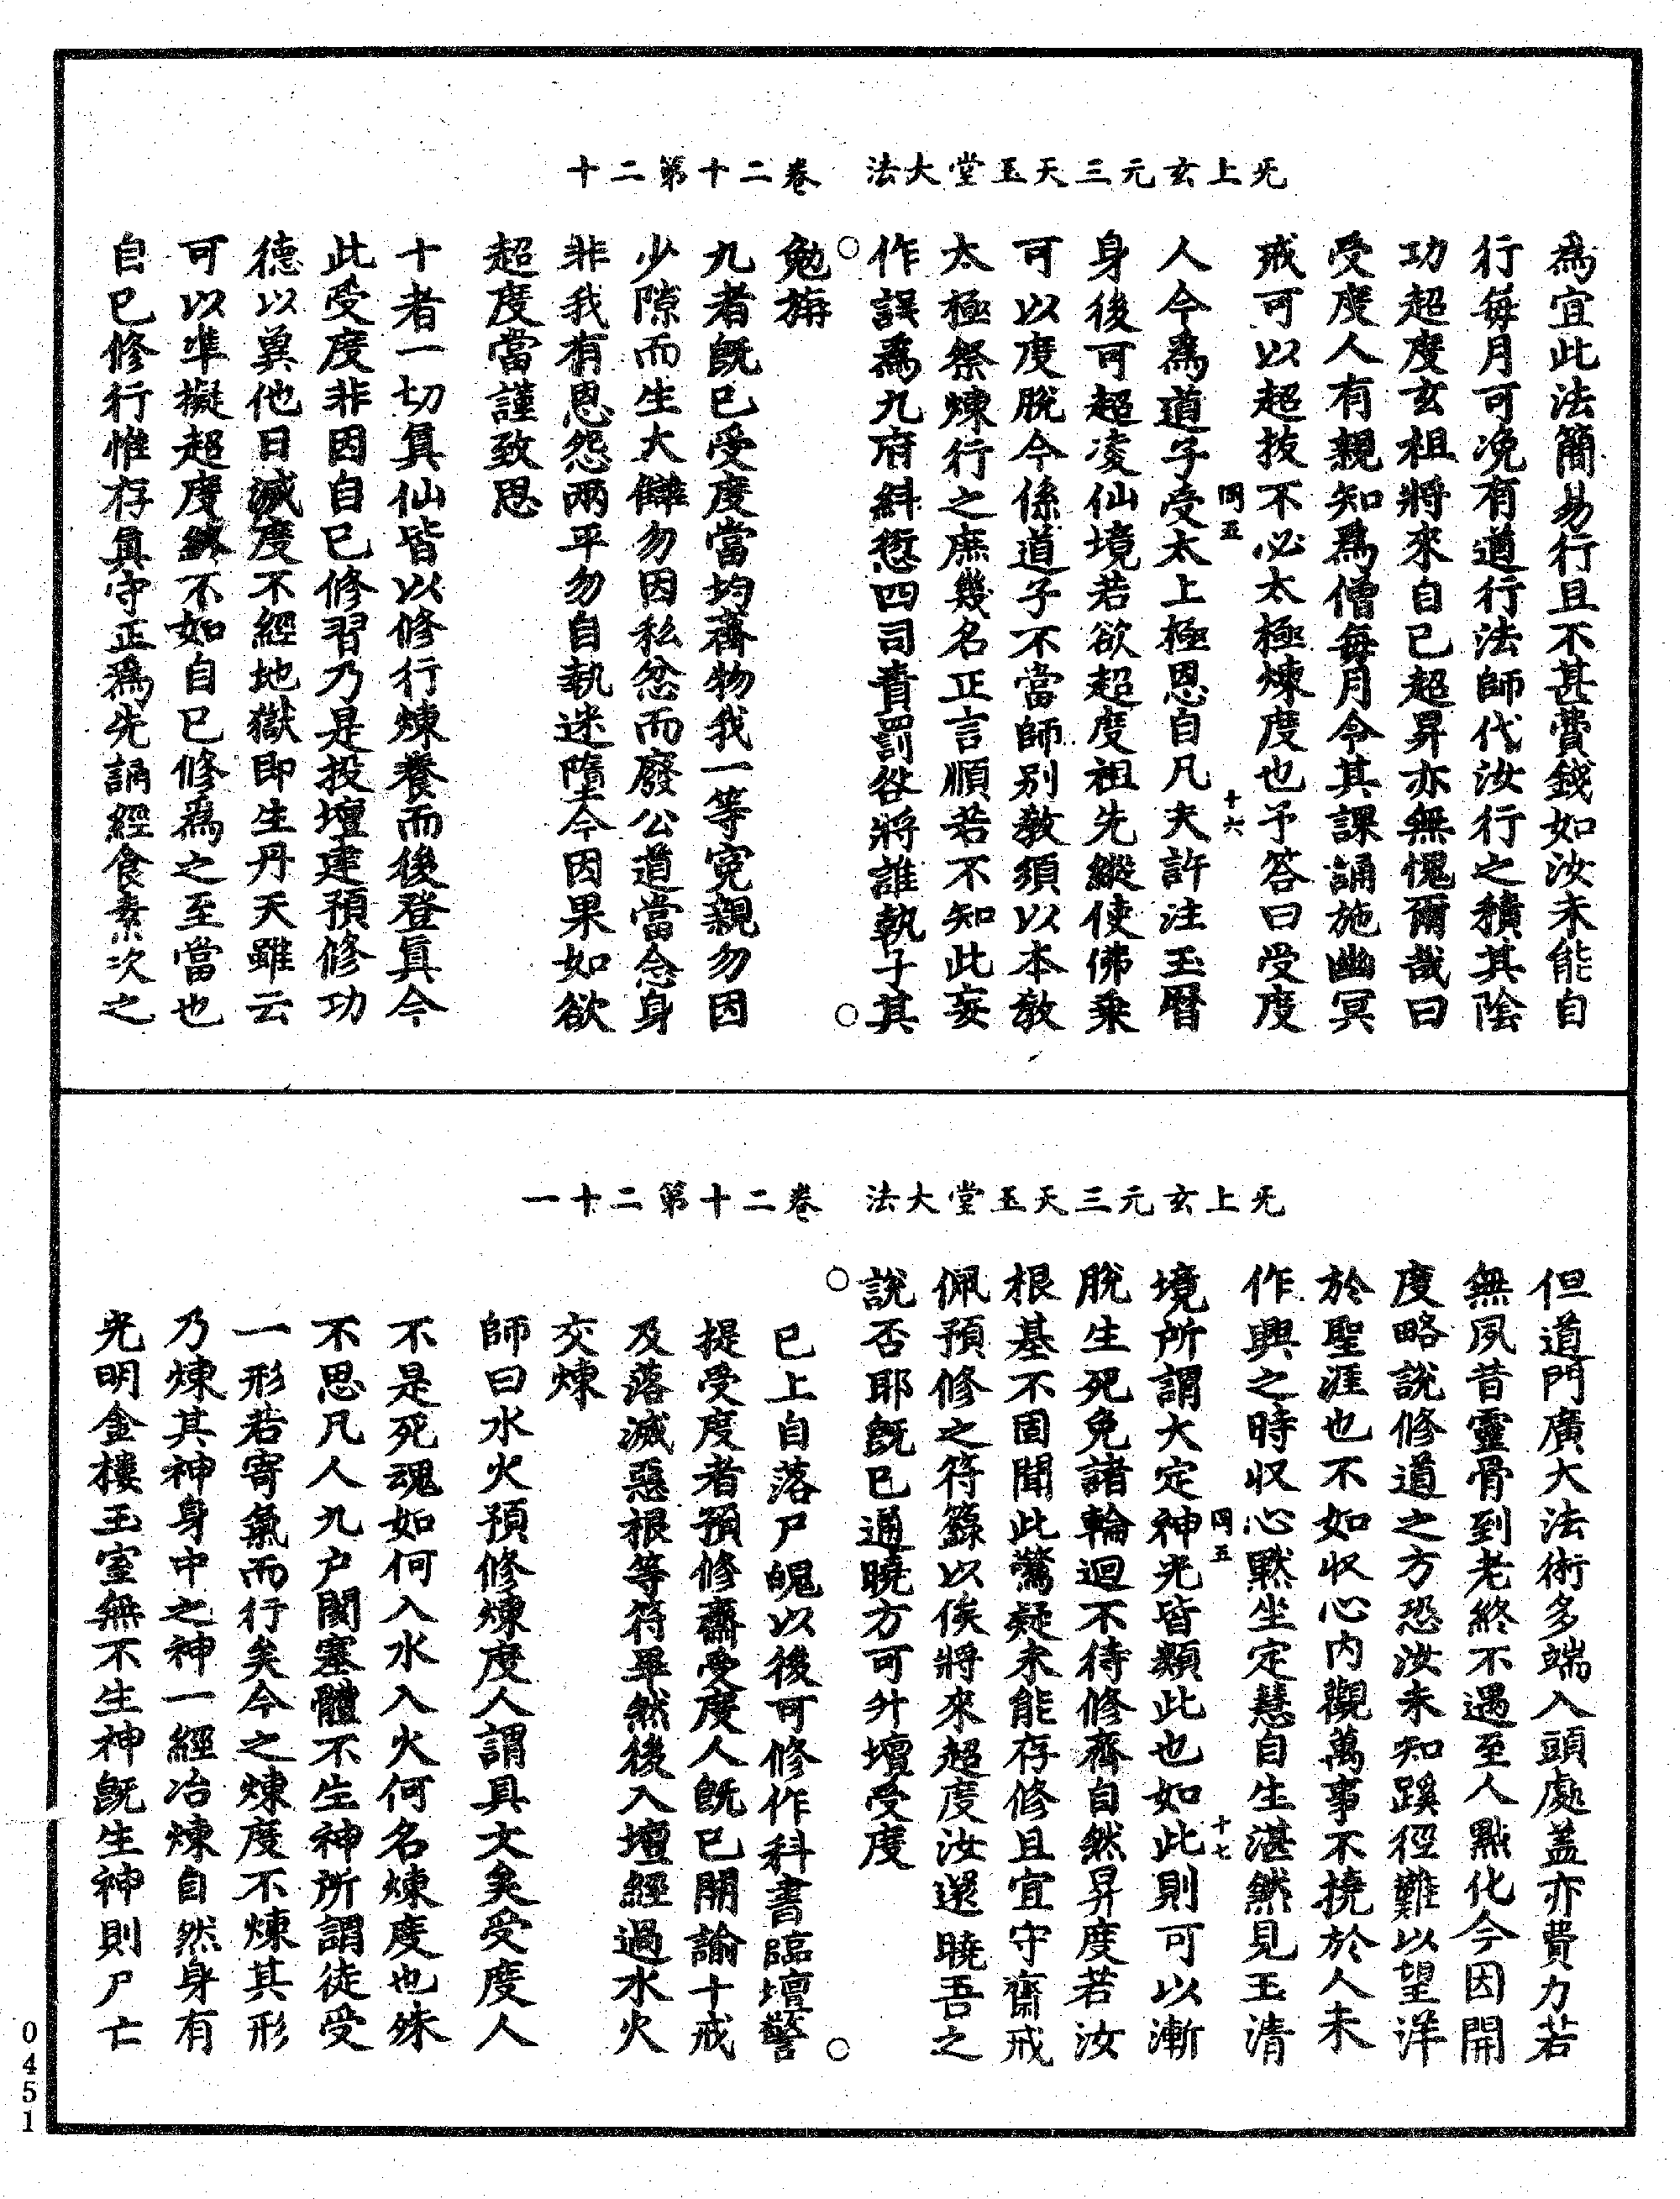 无上玄元三天玉堂大法　卷二十第二十
為宜此法簡易行且不甚費錢如汝未能自
行每月可浼有道行法師代汝行之積其陰
功超度玄祖將來自已超昇亦無愧爾哉曰
受度人有親知為僧每月令其課誦施幽冥
戒可以超拔不必太極煉度也予答曰受度
罔五　十六
人今為道子受太上極恩自凡夫許注玉曆
身後可超凌仙境若欲超度祖先縱使佛乘
可以度脫今係道子不當師別教須以本教
太極祭煉行之庶幾名正言順若不知此妄
作誤為九府糾愆四司責罰咎將誰執子其
勉旃
九者既已受度當均齊物我一等寃親勿因
少隙而生大讎勿因私忿而廢公道當念身
非我有恩怨兩平勿自執迷墮今因果如欲
超度當謹致思
十者一切真仙皆以修行煉養而後登真今
此受度非因自已修習乃是投壇建預修功
德以冀他日滅度不經地獄即生丹天雖云
可以準擬超度終不如自已修為之至當也
自已修行惟存真守正為先誦經食素次之
无上玄元三天玉堂大法　卷二十第二十一
但道門廣大法術多端入頭處蓋亦費力若
無夙昔靈骨到老終不遇至人點化今因開
度略說修道之方恐汝未知蹊徑難以望洋
於聖涯也不如收心內觀萬事不撓於人未
作興之時収心默坐定慧自生湛然見玉清
罔五　十七
境所謂大定神光皆類此也如此則可以漸
脫生死免諸輪迴不待修齋自然昇度若汝
根基不固聞此驚疑未能存修且宜守齋戒
佩預修之符籙以俟將來超度汝還曉吾之
說否耶既已通曉方可升壇受度
已上自落尸䰟以後可修作科書臨壇警
提受度者預修齋受度人既已開諭十戒
及落滅惡根等符畢然後入壇經過水火
交煉
師曰水火預修煉度人謂具文矣受度人
不是死魂如何入水入火何名煉度也殊
不思凡人九户閡塞體不生神所謂徒受
一形若寄氣而行矣今之煉度不煉其形
乃煉其神身中之神一經冶煉自然身有
光明金樓玉室無不生神既生神則尸亡
0451